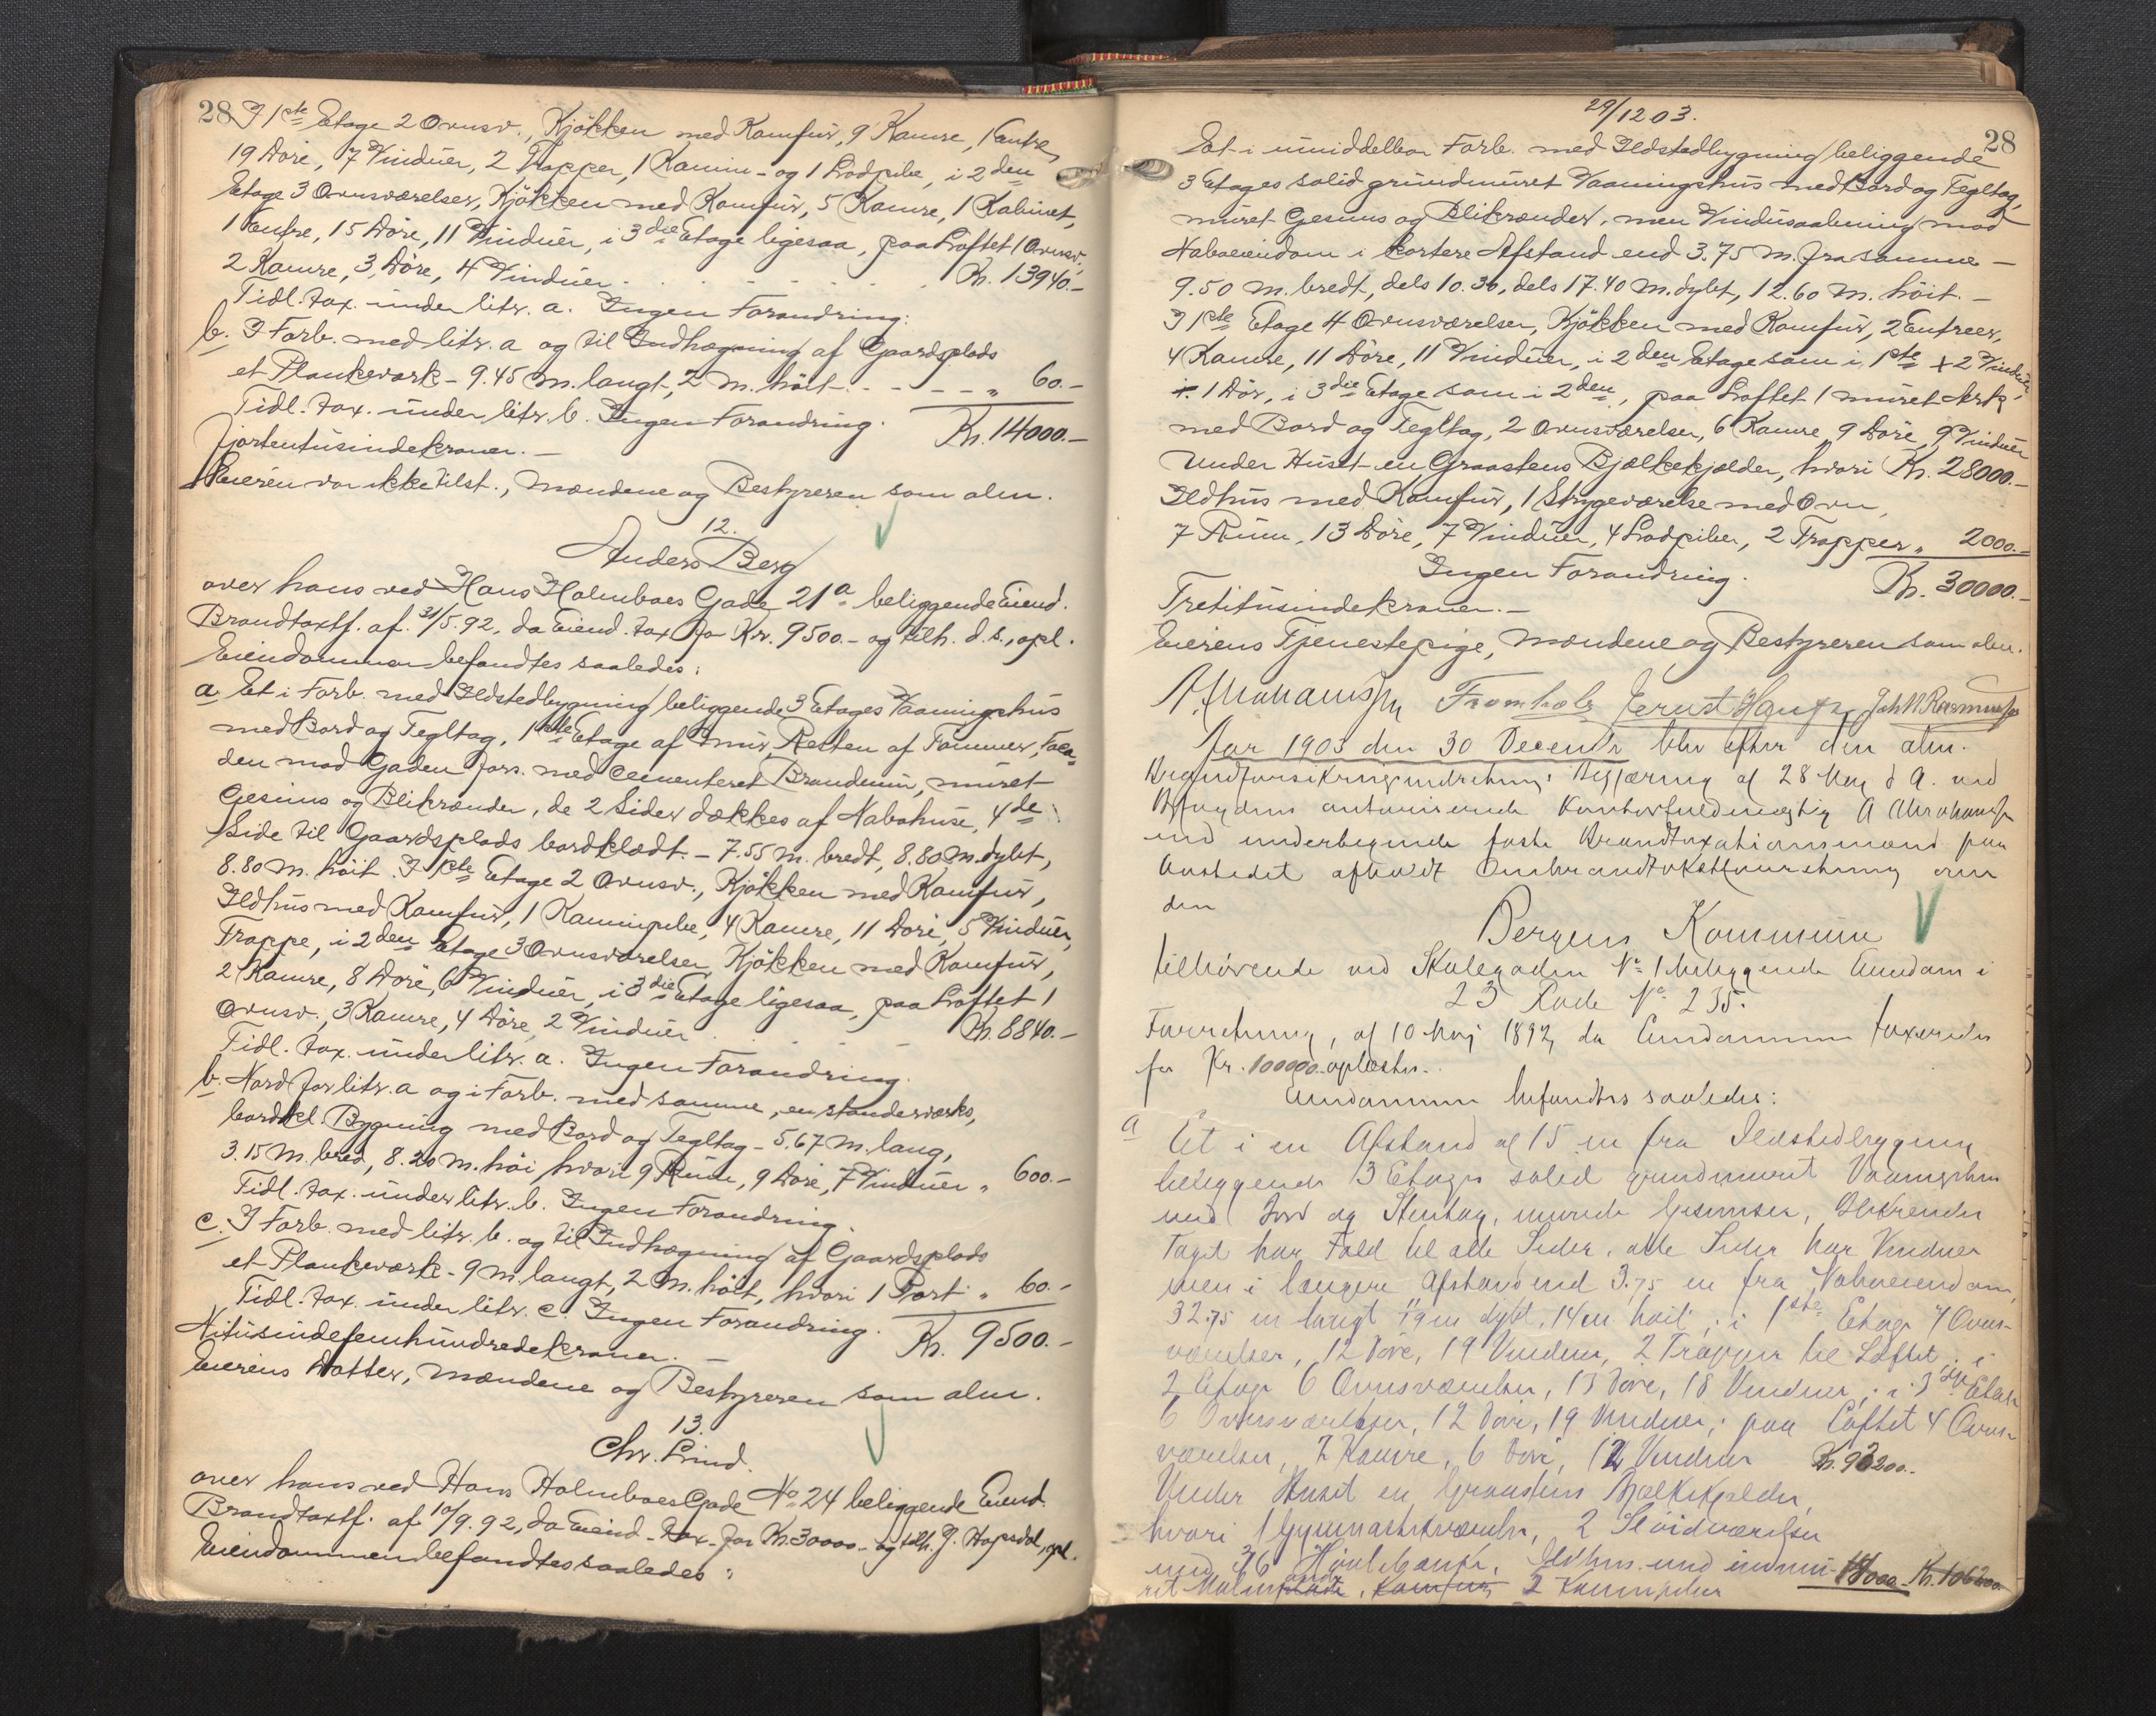 28
I 1ste Etage 2 Ovnsv., Kjökken med Komfür, 9 Kamre, 1 Entre,
19 Döre, 7 Vindüer, 2 Trapper, 1 Kamin- og 1 Lodpibe, i 2den
Etage 3 Ovnsværelser, Kjökken med Komfür, 5 Kamre, 1 Kabinet,
1 Entre, 15 Döre, 11 Vindüer, i 3die Etage ligesaa, paa Loftet 1 Ovnsv.,
2 Kamre, 3 Döre, 4 Vindüer . . . . . . . Kr. 13940.-
Tidl. tax. ünder litr. a. Ingen Forandring.
b. I Forb. med litr. a og til Indhægning af Gaardsplads
et Plankeværk - 9.45 m. langt, 2 m. höit . - - - - „ 60.-
Tidl. tax. ünder litr. b. Ingen Forandring. Kr. 14000.-
Fjortentüsindekroner. -
Eieren var ikke tilst., Mændene og Bestyreren som alm.
12.
Anders Berg
over hans ved Hans Holmboes Gade 21a beliggende Eiend.
Brandtaxtf. af 31/5.92, da Eiend. tax. for Kr. 9500.- og tilh. d. s., opl.
Eiendommen befandtes saaledes:
a. Et i Forb. med Ildstedbygning beliggende 3 Etages Vaaningshüs
med Bord og Tegltag, 1ste Etage af Mür, Resten af Tømmer, Faca-
den mod Gaden fors. med cementeret Brandmür, müret
Gesims og Blikrænder, de 2 Sider dækkes af Nabohüse, 4de
Side til Gaardsplads bordklædt. - 7.55 m. bredt, 8.80 m. dybt,
8.80 m. höit. I 1ste Etage 2 Ovnsv., Kjökken med Komfür,
Ildhüs med Komfür, 1 Kaminpibe, 4 Kamre, 11 Döre, 5 Vindüer,
Trappe, i 2den Etage 3 Ovnsværelser, Kjökken med Komfür,
2 Kamre, 8 Döre, 6 Vindüer, i 3die Etage ligesaa, paa Loftet 1
Ovnsv., 3 Kamre, 4 Döre, 2 Vindüer . . . . Kr. 8840.-
Tidl. tax. ünder litr. a. Ingen Forandring.
b. Nord for litr. a og i Forb. med samme, en standerværks,
bordkl. Bygning med Bord og Tegltag - 5.67 m. lang,
3.15 m. bred, 8.20 m. höi hvori 9 Rüm, 9 Döre, 7 Vindüer „ 600.-
Tidl. tax. ünder litr. b. Ingen Forandring.
c. I Forb. med litr. b. og til Indhægning af Gaardsplads
et Plankeværk - 9 m. langt, 2 m. höit, hvori 1 Port „ 60.-
Tidl. tax. ünder litr. c. Ingen Forandring. Kr. 9500.-
Nitüsindefemhündredekroner. -
Eierens Datter, Mændene og Bestyreren som alm.
13.
Chr. Lind.
over hans ved Hans Holmboes Gade No 24 beliggende Eiend.
Brandtaxtf. af 10/9.92, da Eiend. tax. for Kr. 30000.- og tilh. J. Hopsdal, opl.
Eiendommen befandtes saaledes:
29/12 03.
28
Et i ümiddelbar Forb. med Ildstedbygning beliggende
3 Etages solid gründmüret Vaaningshüs med Bord og Tegltag,
müret Gesims og Blikrænder, men Vindüsaabning mod
Naboeiendom i kortere Afstand end 3.75 m. fra samme -
9.50 m. bredt, dels 10.30, dels 17.40 m. dybt, 12.60 m. höit. -
I 1ste Etage 4 Ovnsværelser, Kjökken med Komfür, 2 Entreer,
4 Kamre, 11 Döre, 11 Vindüer, i 2den Etage som i 1ste + 2 Vindüer
÷ 1 Dör, i 3die Etage som i 2den, paa Loftet 1 müret Ark
med Bord og Tegltag, 2 Ovnsværelser, 6 Kamre 9 Döre, 9 Vindüer
Under Hüset en Graastens Bjælkekjælder, hvori Kr. 28000.-
Ildhüs med Komfür, 1 Strygeværelse med Ovn,
7 Rüm, 13 Döre, 7 Vindüer, 4 Lodpiber, 2 Trapper „ 2000.-
Ingen Forandring. Kr. 30000.-
Tretitüsindekroner. -
Eierens Tjenestepige, Mændene og Bestyreren som alm.
A. Abrahamsen Fromholz Joh N Rasmussen
Aar 1903 den 30 December blev efter den alm.
Brandforsikringsindretnings Begjæring af 28 Maj d A. ved
Byfogdens autoriserede Kontorfuldmægtig A Abrahamsen
med underbegnede faste Brandtaxationsmænd paa
Aastedet afholdt Ombrandtaxtforretning over
den
Bergens Kommune
tilhørende ved Skolegaden No 1 beliggende Eiendom i
23 Rode No 235.
Forretning, af 10 Maj 1892, da Eiendommen taxeredes
for Kr. 100000.- oplæstes.
Eiendommen befandtes saaledes:
a Et i en Afstand af 15 m fra Ildstedbygning
beliggende 3 Etages solid grundmuret Vaaningshus
med Bord og Stentag, murede Gesimser, Blikrender
Taget har Fald til alle Sider, alle Sider har Vinduer
men i længere Afstand end 3.75 m fra Naboeiendom,
32.75 m langt 19 m dybt, 14 m høit; i 1ste Etage 7 Ovns-
værelser, 12 Døre, 19 Vinduer, 2 Trapper til Loftet; i
2 Etage 6 Ovnsværelser, 13 Døre, 18 Vinduer; i 3die Etage
6 Ovnsværelser, 12 Døre, 19 Vinduer; paa Loftet 4 Ovns-
værelser, 7 Kamre, 6 Døre, 12 Vinduer Kr. 93200.-
Under Huset en Graastens Bjælkekjælder,
hvori 1 Gymnastikværelse, 2 Sløidværelser
med 36 Høvlebænke, Ildhus med indmu-
ret 2 Kaminpiber 18000 Kr. 106200